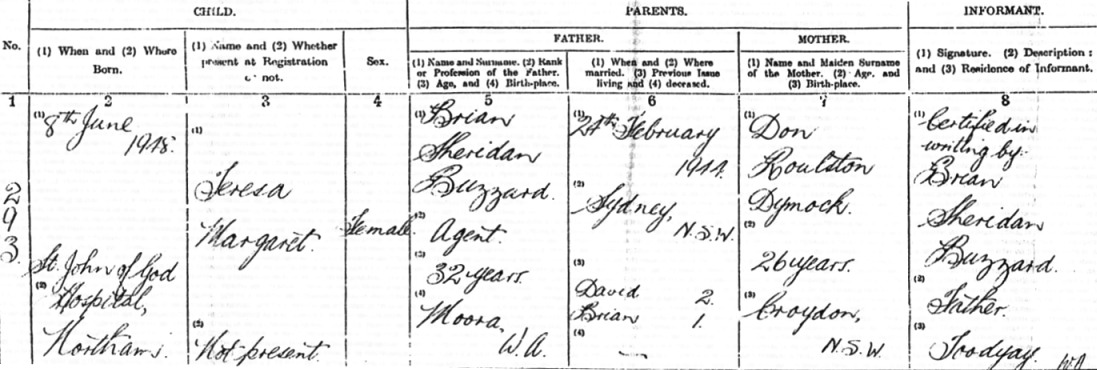 CHILD.
PARENTS.
INFORMANT.
No.
(1) When and (2) Where
Born.
(1) Name and (2) Whether
present at Registration
or not.
Sex.
FATHER.
(1) Name and Surname. (2) Rank
or Profession of the Father.
(3) Age, and (4) Birth-place.
(1) When and (2) Where
married. (3) Previous Issue
living and (4) deceased.
MOTHER.
(1) Name and Maiden Surname
of the Mother. (2) Age, and
(3) Birth-place.
(1) Signature. (2) Description:
and (3) Residence of Informant.
1
2
3
4
5
6
7
8
293
(1) 8th June
1948.
(2) St. John of God
Hospital,
Northam.
(1)
Teresa
Margaret.
(2)
Not present.
Female.
(1) Brian
Sheridan
Buzzard.
(2) Agent.
(3) 32 years.
(4) Moora,
W.A.
(1) 24th February
1944.
(2) Sydney,
N.S.W.
(3)
David 2.
Brian 1.
(4) —
(1) Don
Roulston
Dymock.
(2)
26 years.
(3) Croydon,
N.S.W.
(1) Certified in
writing by:
Brian
Sheridan
Buzzard.
(2) Father.
(3) Toodyay. W.A.